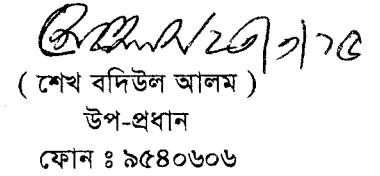 ( শেখ বদিউল আলম )
উপ-প্রধান
ফোন ঃ ৯৫৪০৬০৬